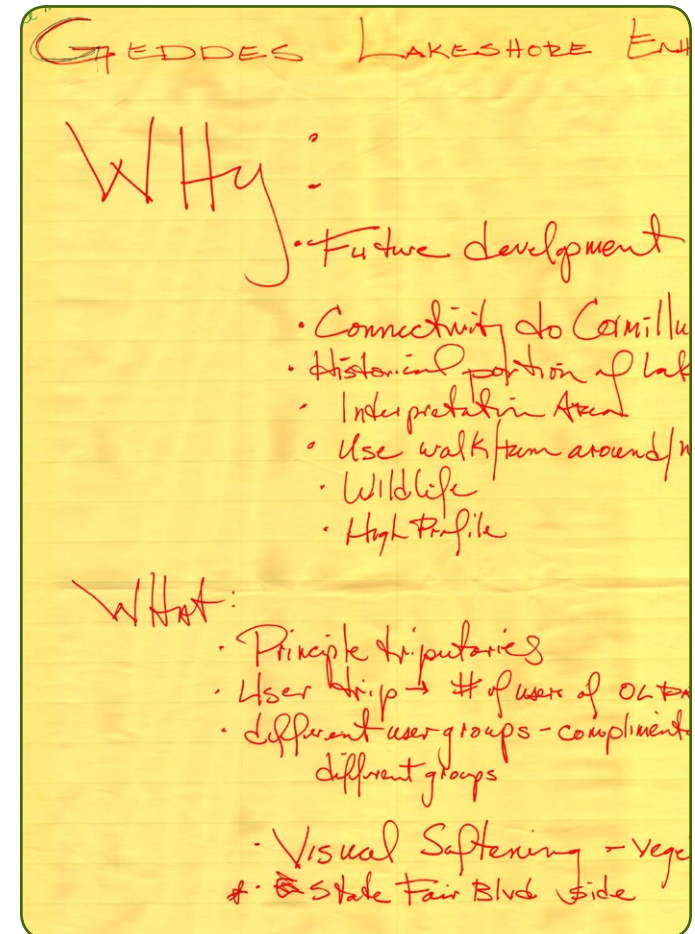 GEDDES LAKESHORE ENH
WHy:
· Future development
· Connectivity to Camillu
· Historical portion of Lak
· Interpretation Area
· Use walk/tram around/
· Wildlife
· High Profile
WHAt:
· Principle tributaries
· User trip → # of users of OL
· different user groups - compliment
different groups
· Visual Softening - vege
* · State Fair Blvd side